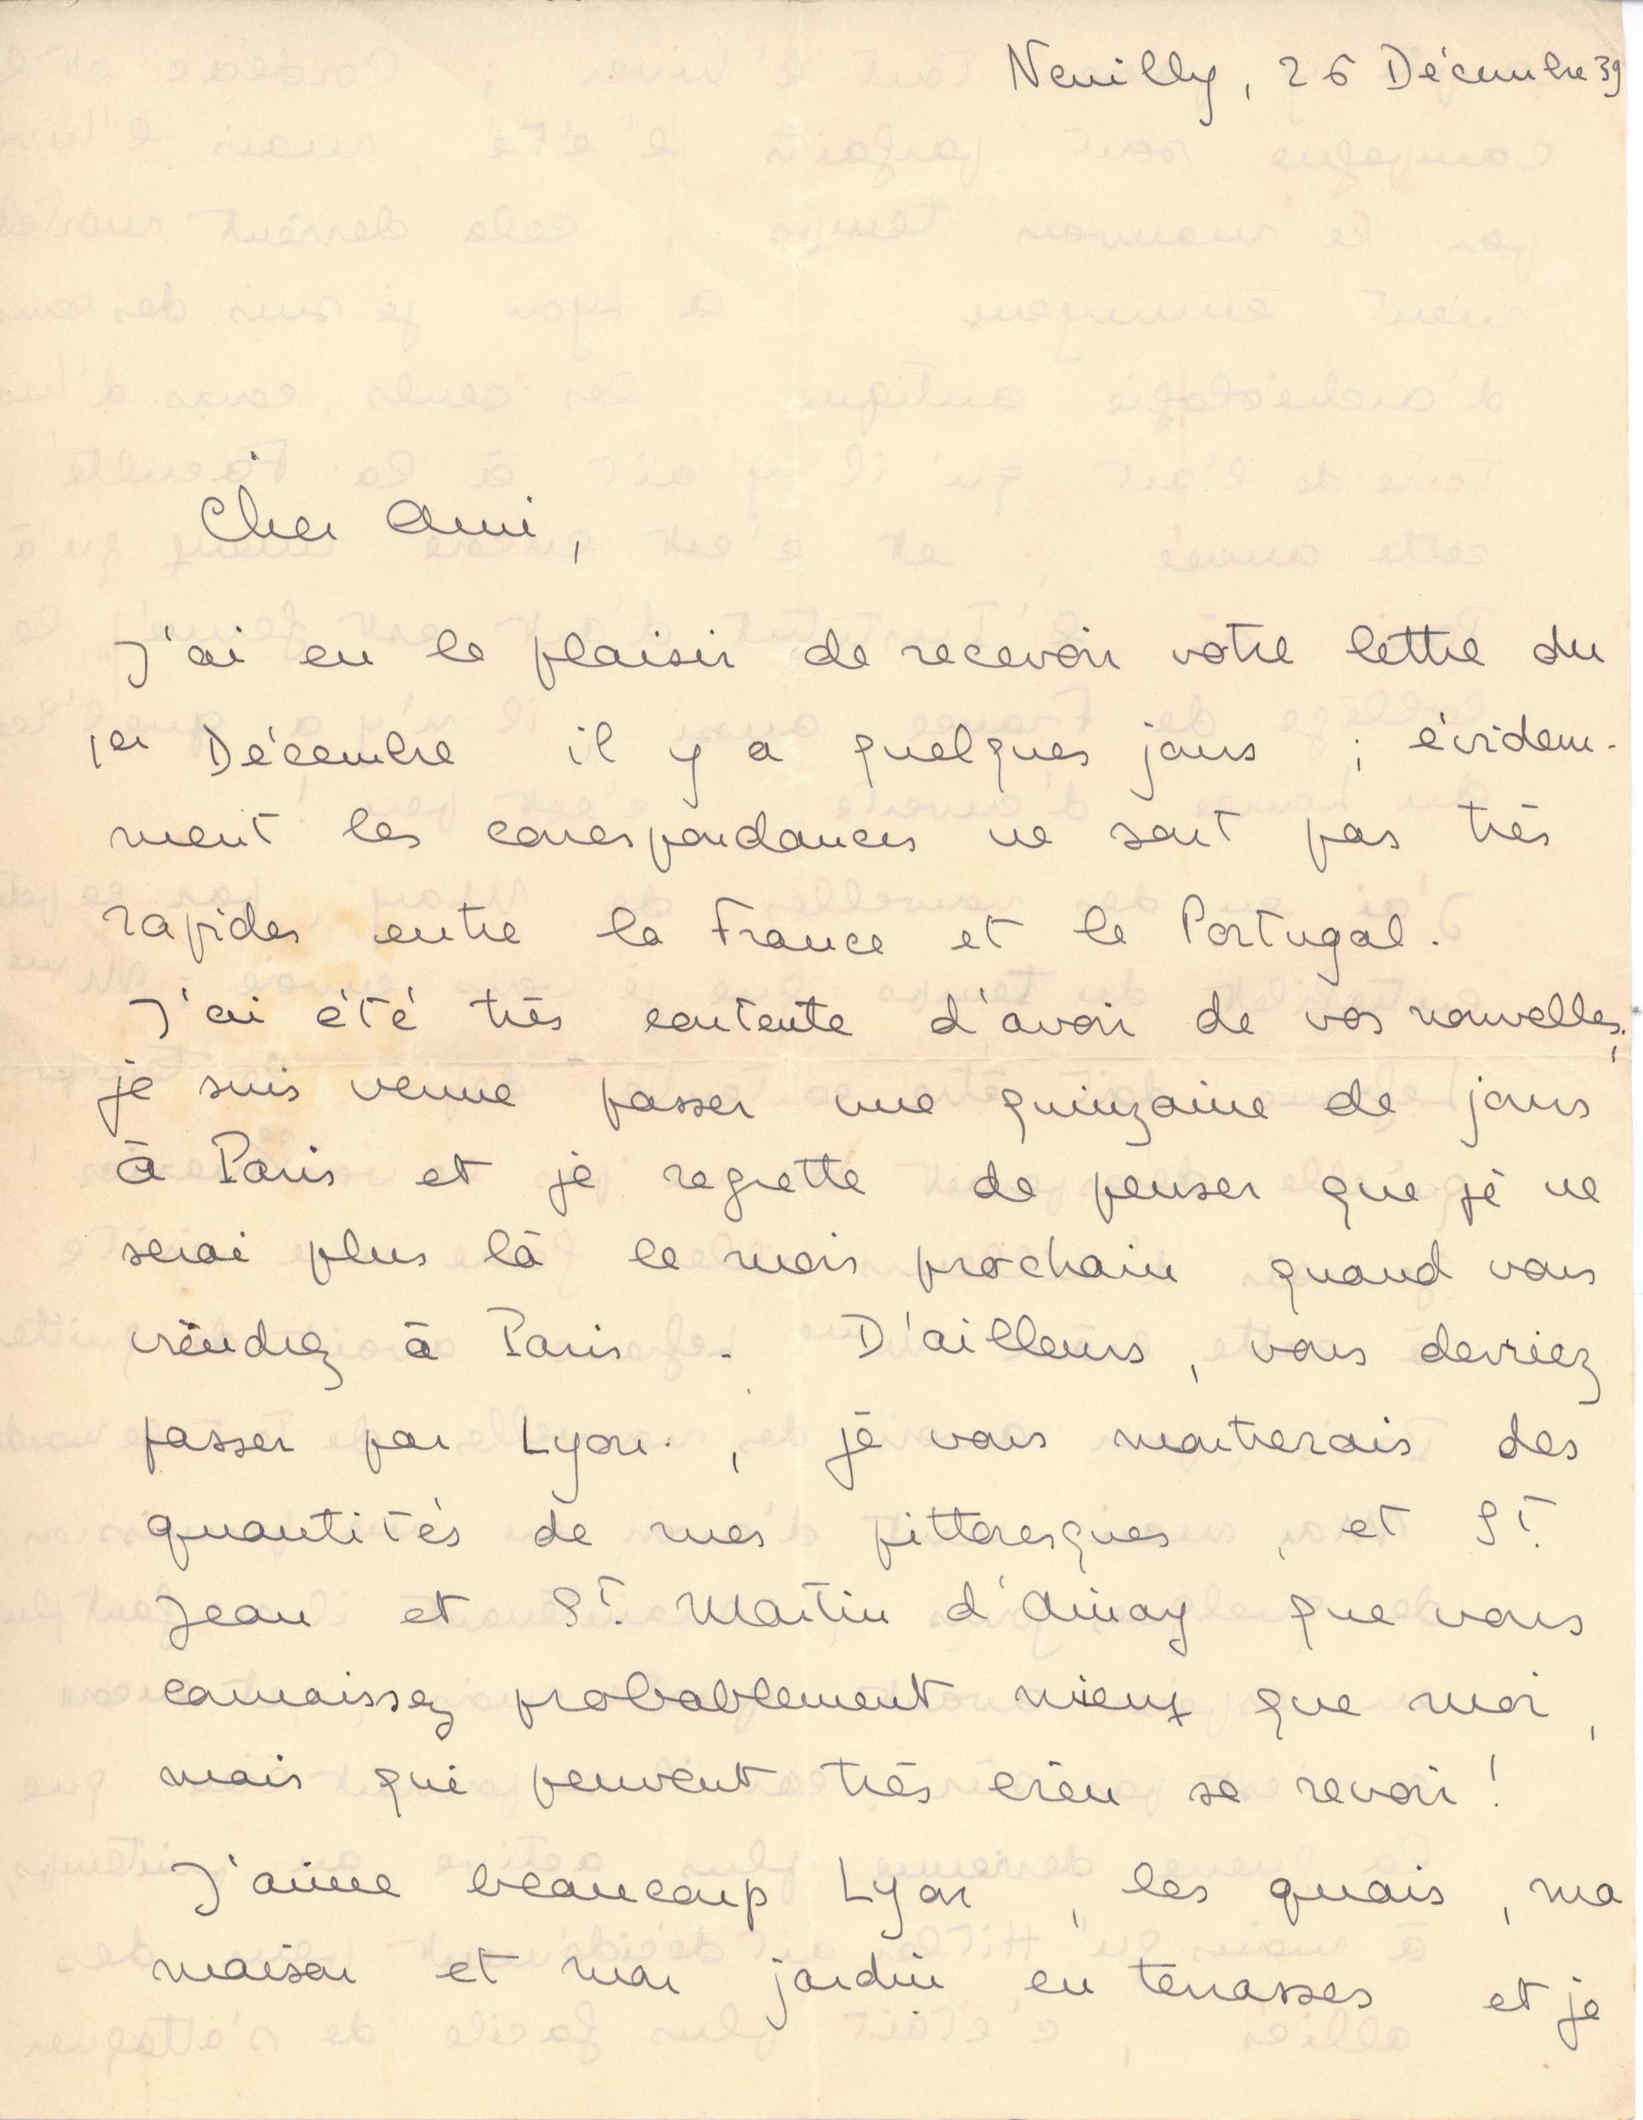 Neuilly, 26 Décembre 39
Cher Ami,
J'ai eu le plaisir de recevoir votre lettre du
1er Décembre il y a quelques jours ; évidem-
ment les correspondances ne sont pas très
rapides entre la France et le Portugal.
J'ai été très contente d'avoir de vos nouvelles;
je suis venue passer une quinzaine de jours
à Paris et je regrette de penser que je ne
serai plus là le mois prochain quand vous
viendrez à Paris. D'ailleurs, vous devriez
passer par Lyon, je vous montrerais des
quantités de rues pittoresques, et St.
Jean et St. Martin d'Ainay que vous
connaissez probablement mieux que moi,
mais qui peuvent très bien se revoir!
J'aime beaucoup Lyon, les quais, ma
maison et mon jardin en terrasses et je